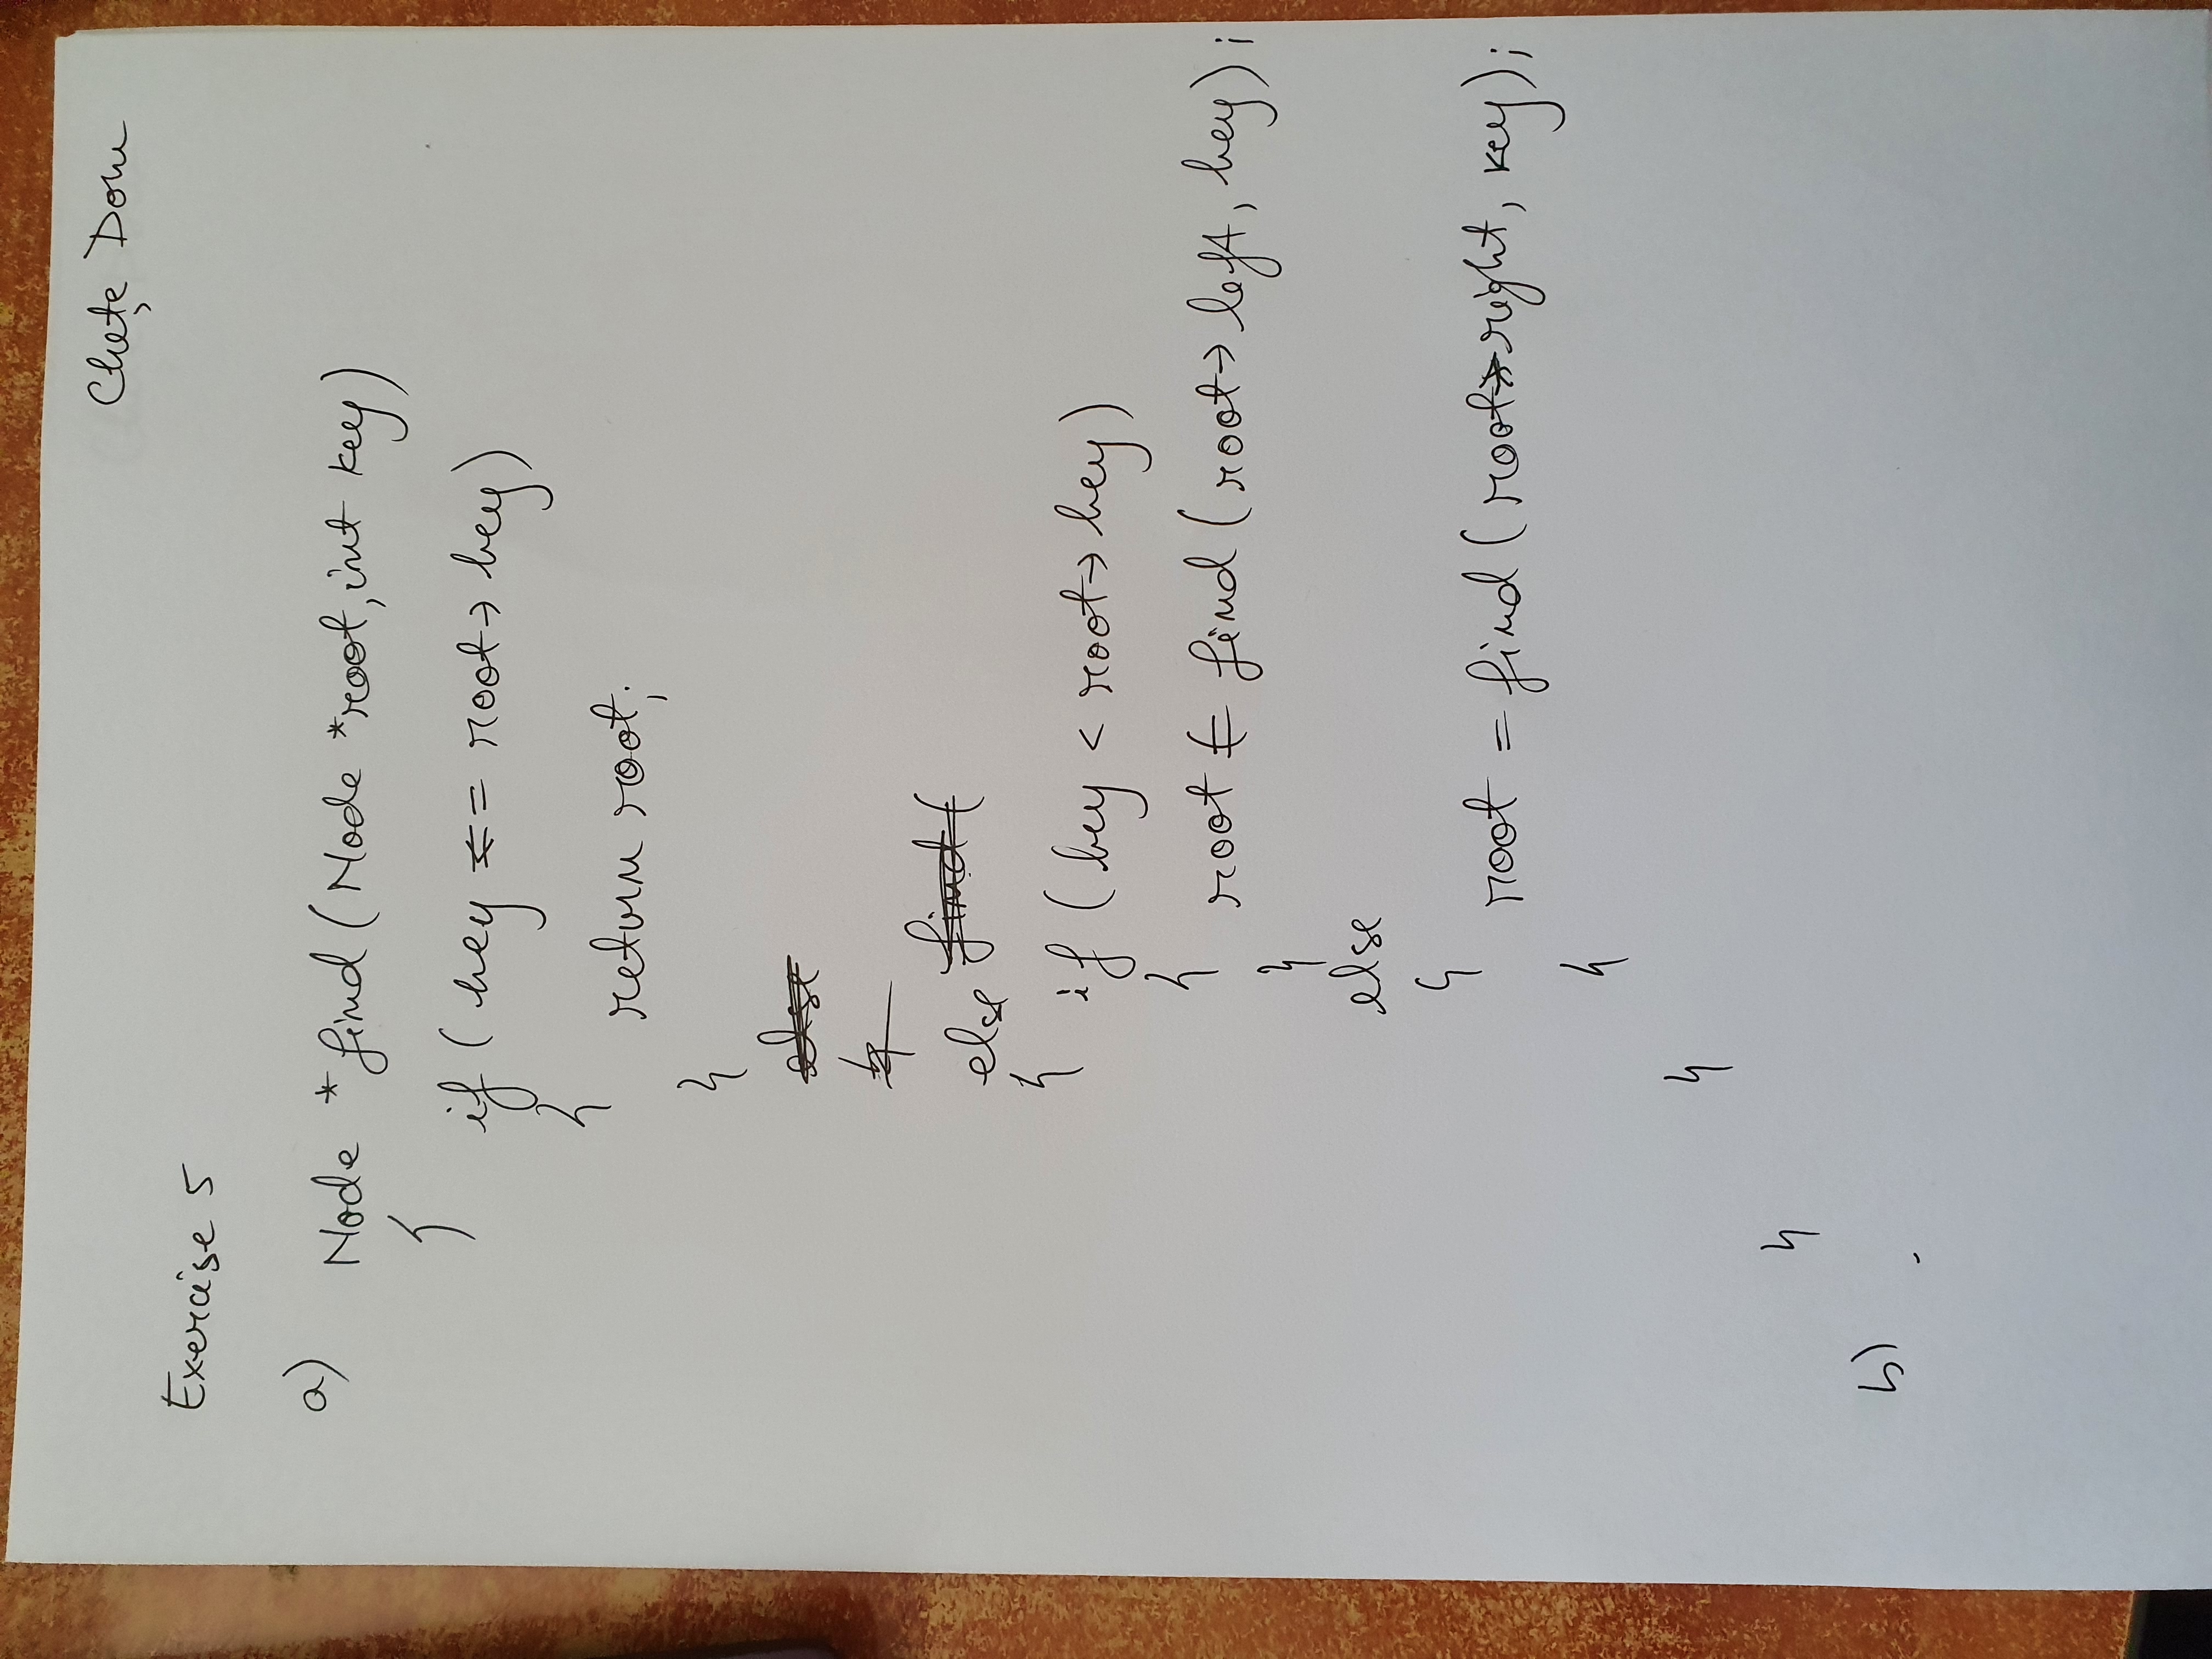 Chețe Dom
Exercise 5
a) Node *find(Node *root, int key)
{
if (key == root→key)
{
return root;
}
else
{
else find(
{
if (key < root→key)
{
root = find(root→left, key);
}
else
{
root = find(root→right, key);
}
}
}
b)